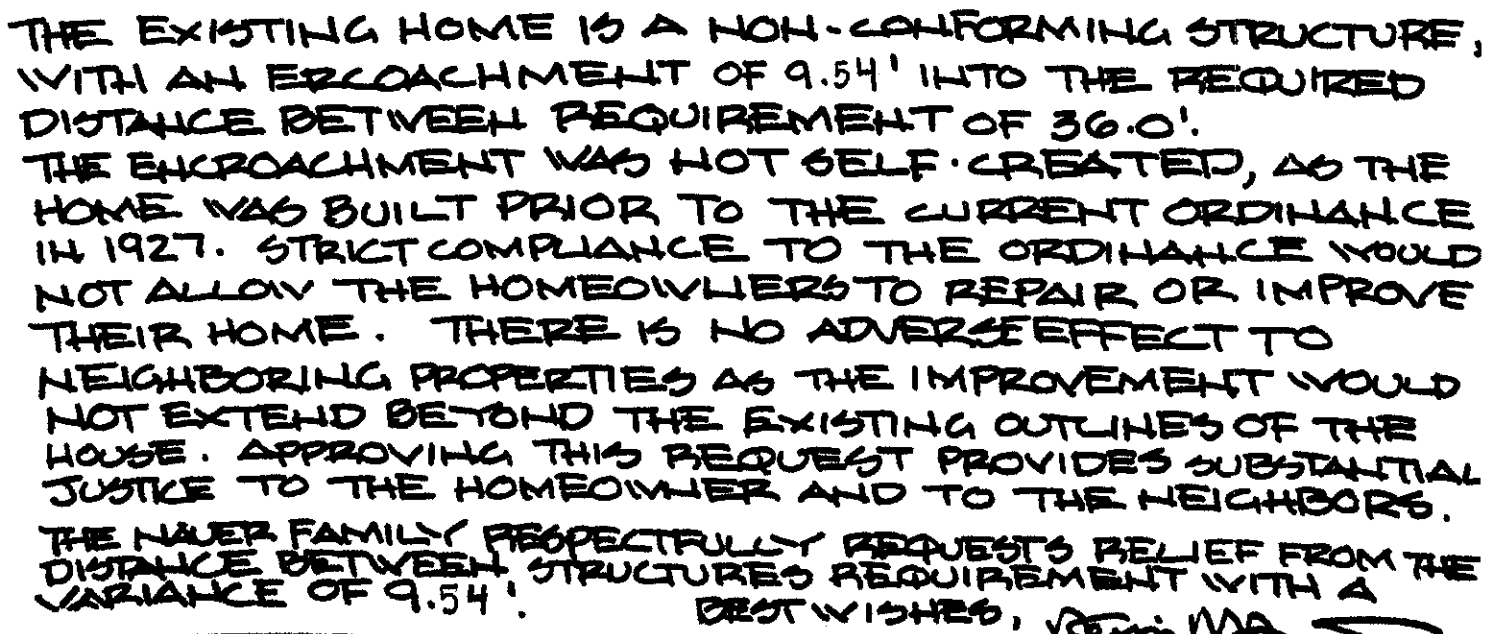 THE EXISTING HOME IS A NON-CONFORMING STRUCTURE,
WITH AN ERCOACHMENT OF 9.54' INTO THE REQUIRED
DISTANCE BETWEEN REQUIREMENT OF 36.0'.
THE ENCROACHMENT WAS NOT SELF-CREATED, AS THE
HOME WAS BUILT PRIOR TO THE CURRENT ORDINANCE
IN 1927. STRICT COMPLIANCE TO THE ORDINANCE WOULD
NOT ALLOW THE HOMEOWNERS TO REPAIR OR IMPROVE
THEIR HOME. THERE IS NO ADVERSE EFFECT TO
NEIGHBORING PROPERTIES AS THE IMPROVEMENT WOULD
NOT EXTEND BEYOND THE EXISTING OUTLINES OF THE
HOUSE. APPROVING THIS REQUEST PROVIDES SUBSTANTIAL
JUSTICE TO THE HOMEOWNER AND TO THE NEIGHBORS.
THE NAUER FAMILY RESPECTFULLY REQUESTS RELIEF FROM THE
DISTANCE BETWEEN STRUCTURES REQUIREMENT WITH A
VARIANCE OF 9.54'.
BEST WISHES,